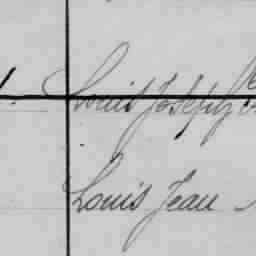 Louis Joseph
Louis Jean